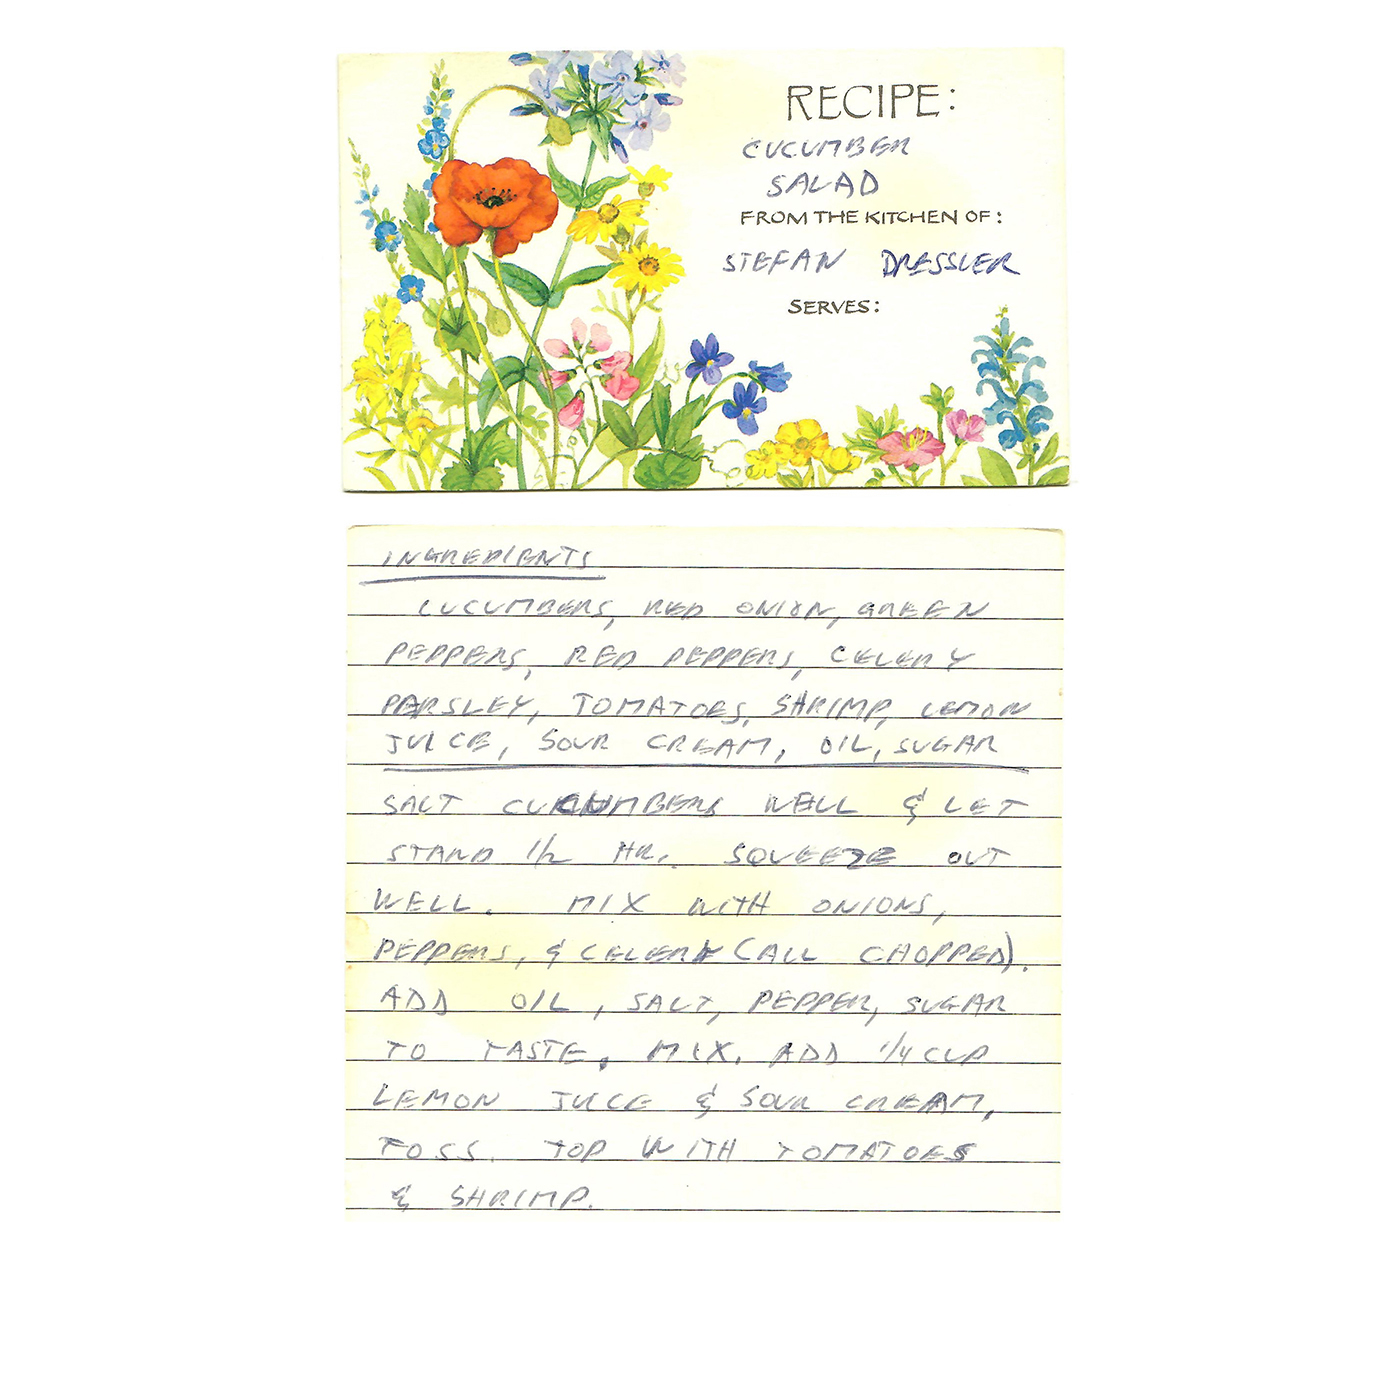 RECIPE:
CUCUMBER
SALAD
FROM THE KITCHEN OF:
STEFAN DRESSLER
SERVES:
INGREDIENTS
CUCUMBERS, RED ONION, GREEN
PEPPERS, RED PEPPERS, CELERY
PARSLEY, TOMATOES, SHRIMP, LEMON
JUICE, SOUR CREAM, OIL, SUGAR
SALT CUCUMBERS WELL & LET
STAND 1/2 HR. SQUEEZE OUT
WELL. MIX WITH ONIONS,
PEPPERS, & CELERY (ALL CHOPPED).
ADD OIL, SALT, PEPPER, SUGAR
TO TASTE. MIX. ADD 1/4 CUP
LEMON JUICE & SOUR CREAM,
TOSS. TOP WITH TOMATOES
& SHRIMP.